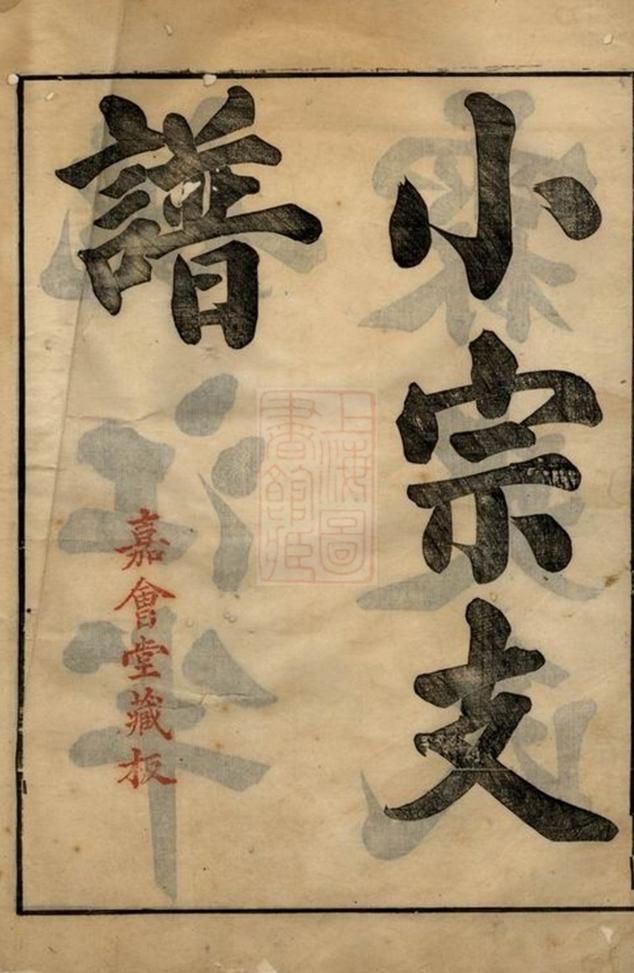 小宗支
譜
嘉會堂藏板
上海圖
書館藏